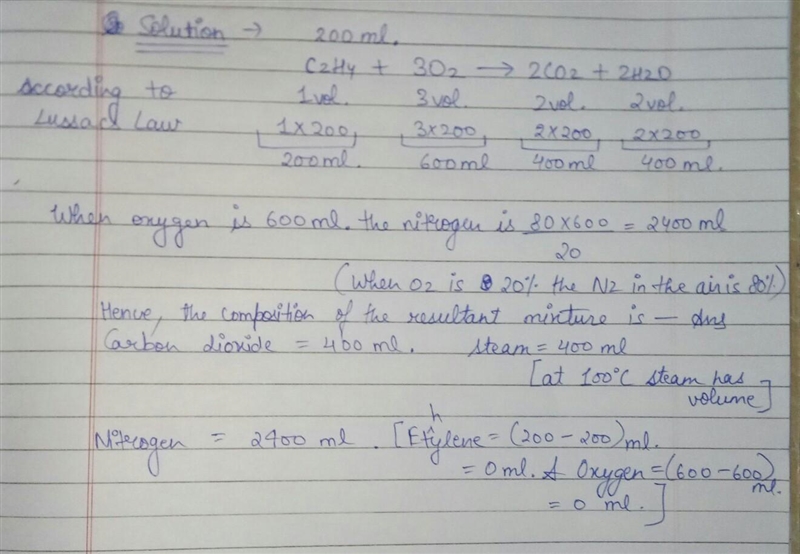 Solution → 200 ml.
C2H4 + 3O2 → 2CO2 + 2H2O
According to 1 vol. 3 vol. 2 vol. 2 vol.
Lussacs Law 1×200 3×200 2×200 2×200
200 ml. 600 ml 400 ml 400 ml.
When oxygen is 600 ml. the nitrogen is 80×600 = 2400 ml
20
(When O2 is 20% the N2 in the air is 80%)
Hence, the composition of the resultant mixture is — Ans
Carbon dioxide = 400 ml. steam = 400 ml
[at 100°C steam has
volume]
Nitrogen = 2400 ml. [Ethylene = (200 - 200) ml.
= 0 ml. & Oxygen = (600 - 600)
ml.
= 0 ml.]